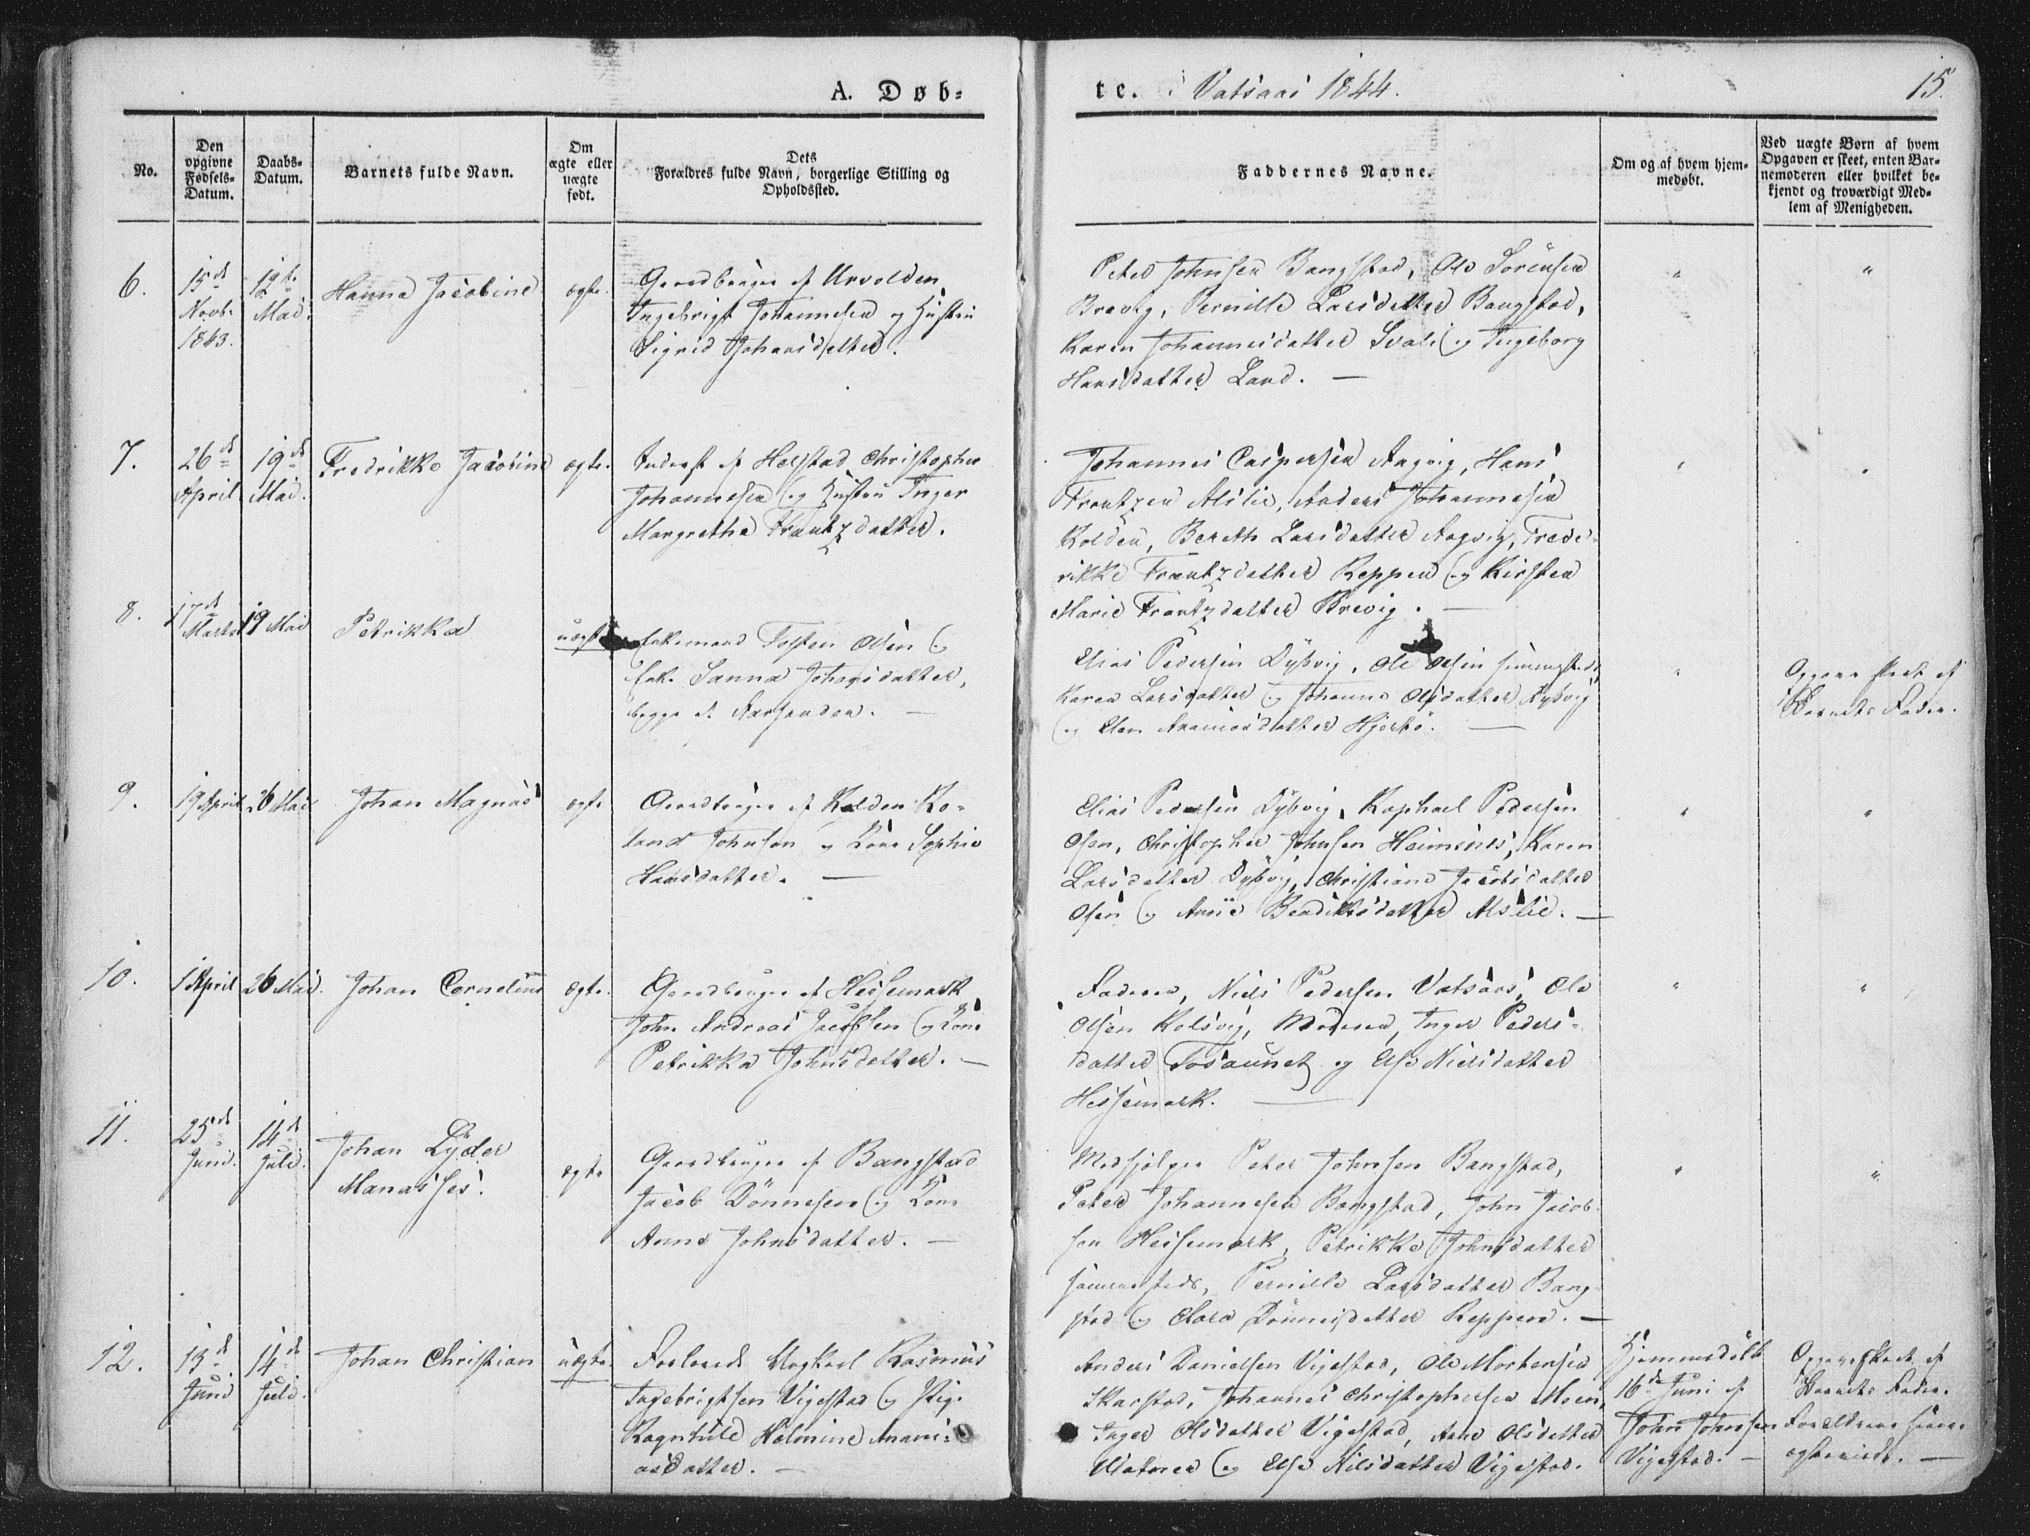 A. Døb=
te. i Vatsaas 1844.
15.
No.
Den
opgivne
Fødsels-
Datum.
Daabs-
Datum.
Barnets fulde Navn.
Om
ægte eller
uægte
født.
Dets
Forældres fulde Navn, borgerlige Stilling og
Opholdssted.
Faddernes Navne.
Om og af hvem hjem-
medøbt.
Ved uægte Børn af hvem
Opgaven er skeet, enten Bar-
nemoderen eller hvilket be-
kjendt og troværdigt Med-
lem af Menigheden.
6.
15de
Novb.
1843.
19de
Mai.
Hanna Jacobine
ægte.
Gaardbruger af Urvolden
Ingebrigt Johannesen og Hustru
Sigrid Johansdatter.
Peter Johnsen Bangstad, Ole Sørensen
Brevig, Pernille Larsdatter Bangstad,
Karen Johannesdatter Svali og Ingeborg
Hansdatter Land. —
"
"
7.
26de
April
19de
Mai.
Fredrikke Jacobine
ægte.
Inderst af Helstad Christopher
Johannesen og Hustru Inger
Margrethe Frantzdatter.
Johannes Caspersen Aagvig, Hans
Frantzen Alslie, Anders Johannesen
Kolden, Bereth Larsdatter Aagvig, Frede-
rikke Frantzdatter Reppen og Kirsten
Marie Frantzdatter Brevig. —
"
"
8.
17de
Marts
19 Mai
Petrikka
uægte
Enkemand Torsten Olsen og
Enke Sanna Johansdatter,
begge af Aarsanden. —
Elias Pedersen Dybvig, Ole Olsen sammesteds,
Karen Larsdatter og Johanna Olsdatter Dybvig
og Elen Ananiasdatter Hjortø. —
"
Opgave skeet af
Barnets Fader.
9.
19 April
26 Mai
Johan Magnus
ægte
Gaardbruger af Kolden Ro-
land Johnsen og Kone Sophie
Hansdatter. —
Elias Pedersen Dybvig, Raphael Pedersen
Olsen, Christopher Johnsen Heimsnes, Karen
Larsdatter Dybvig, Christiane Jacobsdatter
Olsen og Anne Bendiktsdatter Alslie. —
"
"
10.
1 April
26 Mai.
Johan Cornelius
ægte.
Gaardbruger af Heisemark
John Andreas Jacobsen og Kone
Petrikka Johnsdatter. —
Faderen, Niels Pedersen Vatsaas, Ole
Olsen Kolsvig, Moderen, Inger Peders-
datter Tosaunet og Else Nielsdatter
Heisemark. —
"
"
11.
25de
Juni.
14de
Juli.
Johan Lyder
Manasses.
ægte
Gaardbruger af Bangstad
Jacob Dønnesen og Kone
Anne Johnsdatter. —
Medhjelper Peter Johnsen Bangstad,
Peter Johannesen Bangstad, John Jacob-
sen Heisemark, Petrikke Johnsdatter
sammesteds, Pernille Larsdatter Bang-
stad og Clara Dønnesdatter Reppen. —
"
"
12.
13de
Juni
14de
Juli.
Johan Christian
uægte.
Forlovede Ungkarl Rasmus
Ingebrigtsen Vigestad og Pige
Ragnhild Holmine Anani-
asdatter. —
Anders Danielsen Vigestad, Ole Mortensen
Skarstad, Johannes Christophersen Moen,
Inger Olsdatter Vigestad, Ane Olsdatter
og Else Nilsdatter Vigestad.
Hjemmedøbt
16de Juni af
John Johnsen
Vigestad. —
Opgave skeet af
Barnets Fader.
Forældrene siden